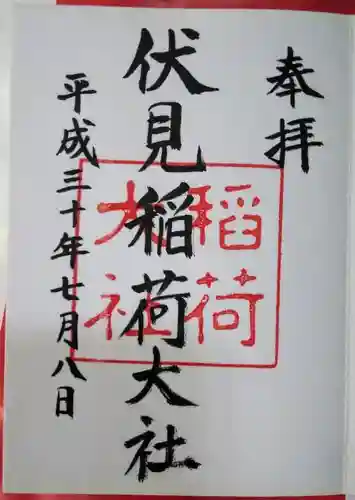 奉拝
伏見稲荷大社
平成三十年七月八日
稲荷
大社